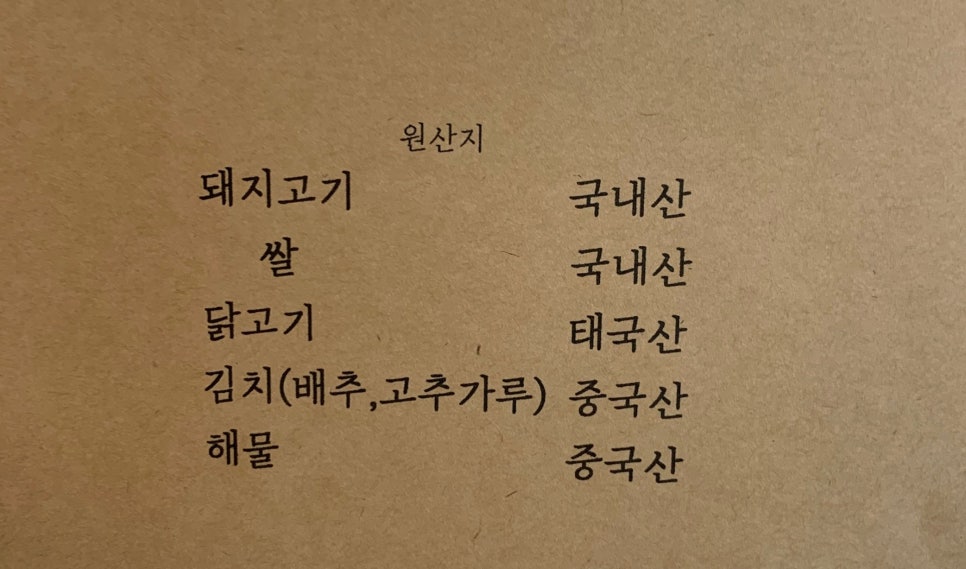 원산지
돼지고기 국내산
쌀 국내산
닭고기 태국산
김치(배추,고추가루) 중국산
해물 중국산